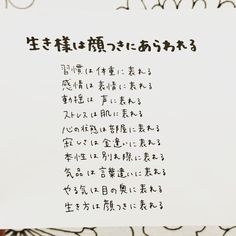 生き様は顔つきにあらわれる
習慣は体重に表れる
感情は表情に表れる
動揺は声に表れる
ストレスは肌に表れる
心の状態は部屋に表れる
寂しさは金遣いに表れる
本性は別れ際に表れる
気品は言葉遣いに表れる
やる気は目の奥に表れる
生き方は顔つきに表れる